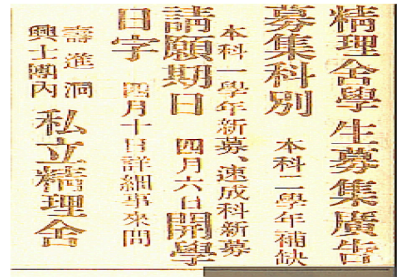 精理舍學生募集廣告
募集科別 本科二學年補缺
本科一學年新募、速成科新募
請願期日 四月六日開學
日字 四月十日詳細事來問
壽進洞
興士團內 私立精理舍